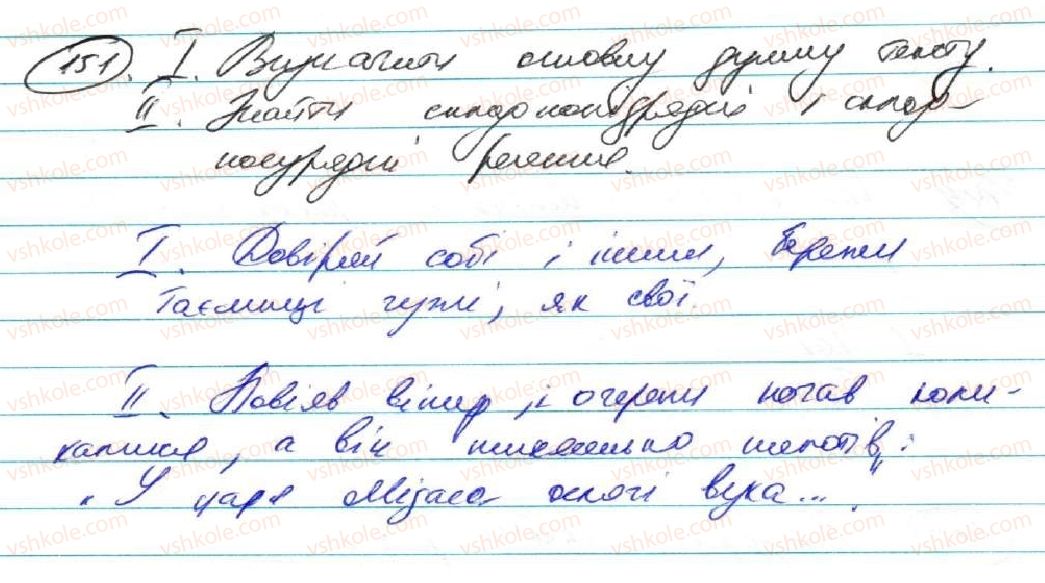 151. I. Визначити основну думку тексту.
II. Знайти складнопідрядні і склад-
носурядні речення.
I. Довіряй собі і іншим, бережи
таємниці чужі, як свої.
II. Повіяв вітер, і очерет почав коли-
хатися, а він тихесенько шепотів:
"У царя Мідаса ослячі вуха..."